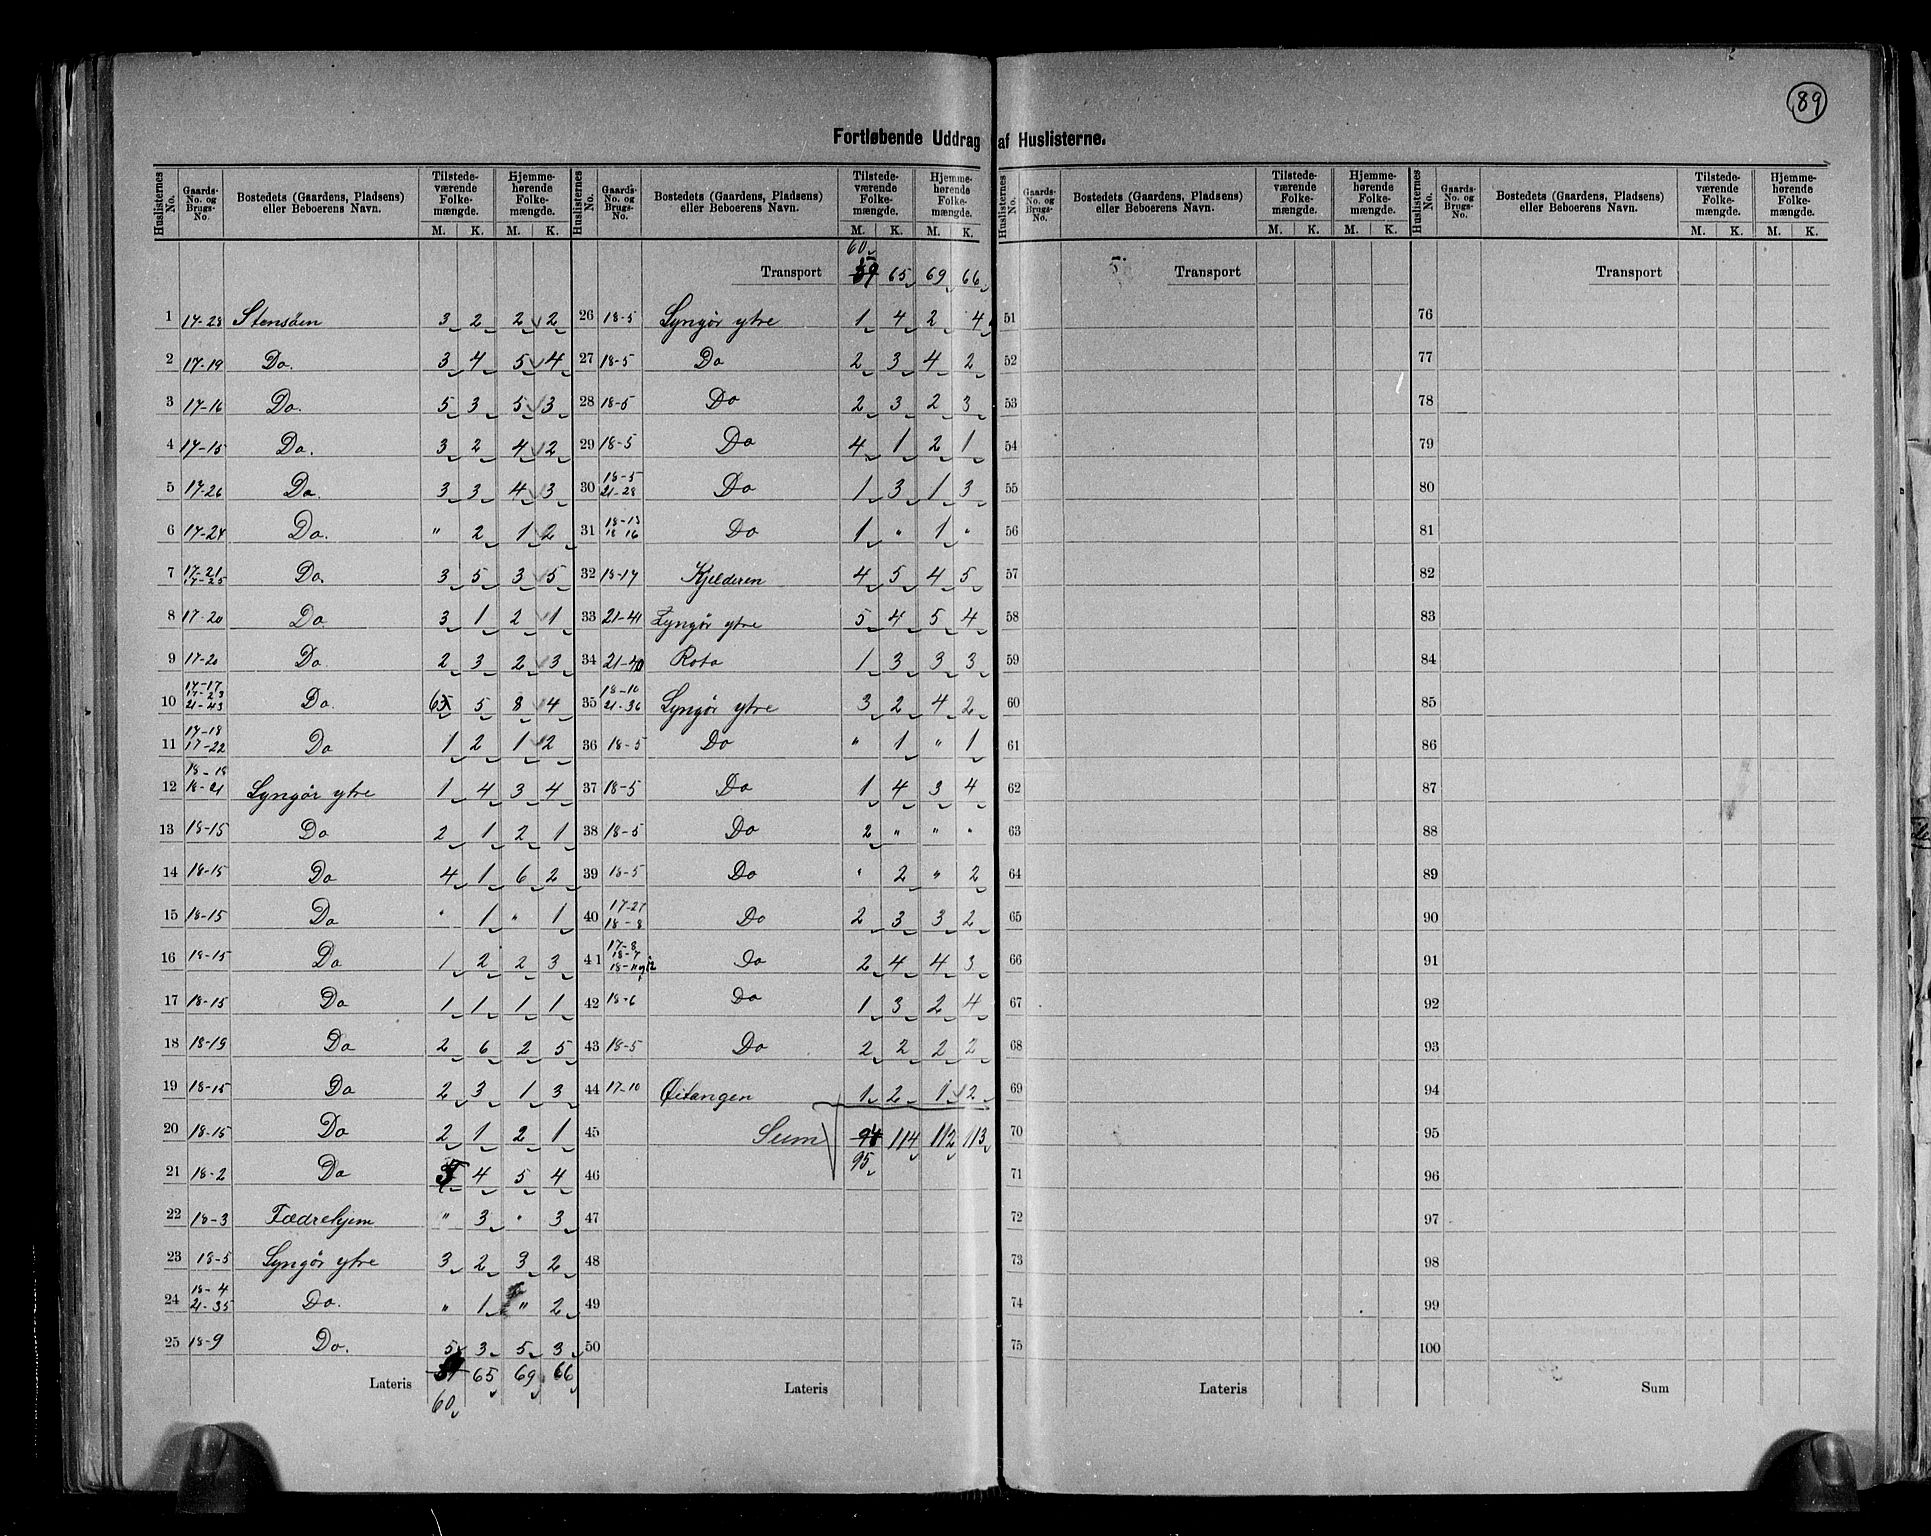 89
Fortløbende Uddrag af Huslisterne.
Huslisternes No. | Gaards-No. og Brugs-No. | Bostedets (Gaardens, Pladsens) eller Beboerens Navn. | Tilstedeværende Folkemængde. M. K. | Hjemmehørende Folkemængde. M. K.
1 17-28 Stensöen 3 2 2 2
2 17-19 Do. 3 4 5 4
3 17-16 Do. 5 3 5 3
4 17-15 Do. 3 2 4 2
5 17-26 Do. 3 3 4 3
6 17-24 Do. " 2 1 2
7 17-21 17-25 Do. 3 5 3 5
8 17-20 Do 3 1 2 1
9 17-20 Do 2 3 2 3
10 17-17 17-23 21-43 Do. 6 5 8 4
11 17-18 17-22 Do 1 2 1 2
12 18-18 18-21 Lyngør ytre 1 4 3 4
13 18-15 Do 2 1 2 1
14 18-15 Do 4 1 6 2
15 18-15 Do " 1 " 1
16 18-15 Do 1 2 2 3
17 18-15 Do 1 1 1 1
18 18-19 Do 2 6 2 5
19 18-15 Do 2 3 1 3
20 18-15 Do 2 1 2 1
21 18-2 Do 4 5 4
22 18-3 Fædrehjem " 3 " 3
23 18-5 Lyngør ytre 3 2 3 2
24 18-4 21-35 Do. " 1 " 2
25 18-9 Do. 5 3 5 3
Lateris 65 69 66
60
Huslisternes No. | Gaards-No. og Brugs-No. | Bostedets (Gaardens, Pladsens) eller Beboerens Navn. | Tilstedeværende Folkemængde. M. K. | Hjemmehørende Folkemængde. M. K.
60
Transport 59 65 69 66
26 18-5 Lyngør ytre 1 4 2 4
27 18-5 Do 2 3 4 2
28 18-5 Do 2 3 2 3
29 18-5 Do 4 1 2 1
30 18-5 21-28 Do 1 3 1 3
31 18-13 18 16 Do 1 " 1 "
32 18-17 Kjelderen 4 5 4 5
33 21-41 Lyngør ytre 5 4 5 4
34 21-40 Rota 1 3 3 3
35 18-10 21-36 Lyngør ytre 3 2 4 2
36 18-5 Do " 1 " 1
37 18-5 Do 1 4 3 4
38 18-5 Do 2 " " "
39 18-5 Do " 2 " 2
40 17-27 18-8 Do 2 3 3 2
41 17-8 18-7 18-11 og 12 Do 2 4 4 3
42 18-6 Do 1 3 2 4
43 18-5 Do 2 2 2 2
44 17-10 Øitangen 1 2 1 2
45 Sum 94 114 112 113
95
46
47
48
49
50
Lateris
Huslisternes No. | Gaards-No. og Brugs-No. | Bostedets (Gaardens, Pladsens) eller Beboerens Navn. | Tilstedeværende Folkemængde. M. K. | Hjemmehørende Folkemængde. M. K.
Transport
51
52
53
54
55
56
57
58
59
60
61
62
63
64
65
66
67
68
69
70
71
72
73
74
75
Lateris
Huslisternes No. | Gaards-No. og Brugs-No. | Bostedets (Gaardens, Pladsens) eller Beboerens Navn. | Tilstedeværende Folkemængde. M. K. | Hjemmehørende Folkemængde. M. K.
Transport
76
77
78
79
80
81
82
83
84
85
86
87
88
89
90
91
92
93
94
95
96
97
98
99
100
Sum